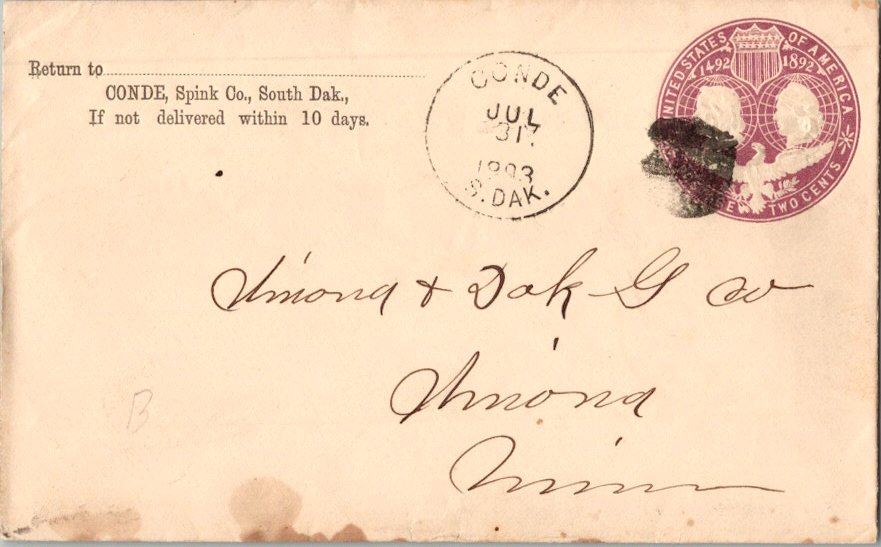 Return to
CONDE, Spink Co., South Dak.,
If not delivered within 10 days.
CONDE
JUL
31
1893
S. DAK.
UNITED STATES OF AMERICA
1492 1892
TWO CENTS
Winona & Dak G Co
Winona
Minn
B